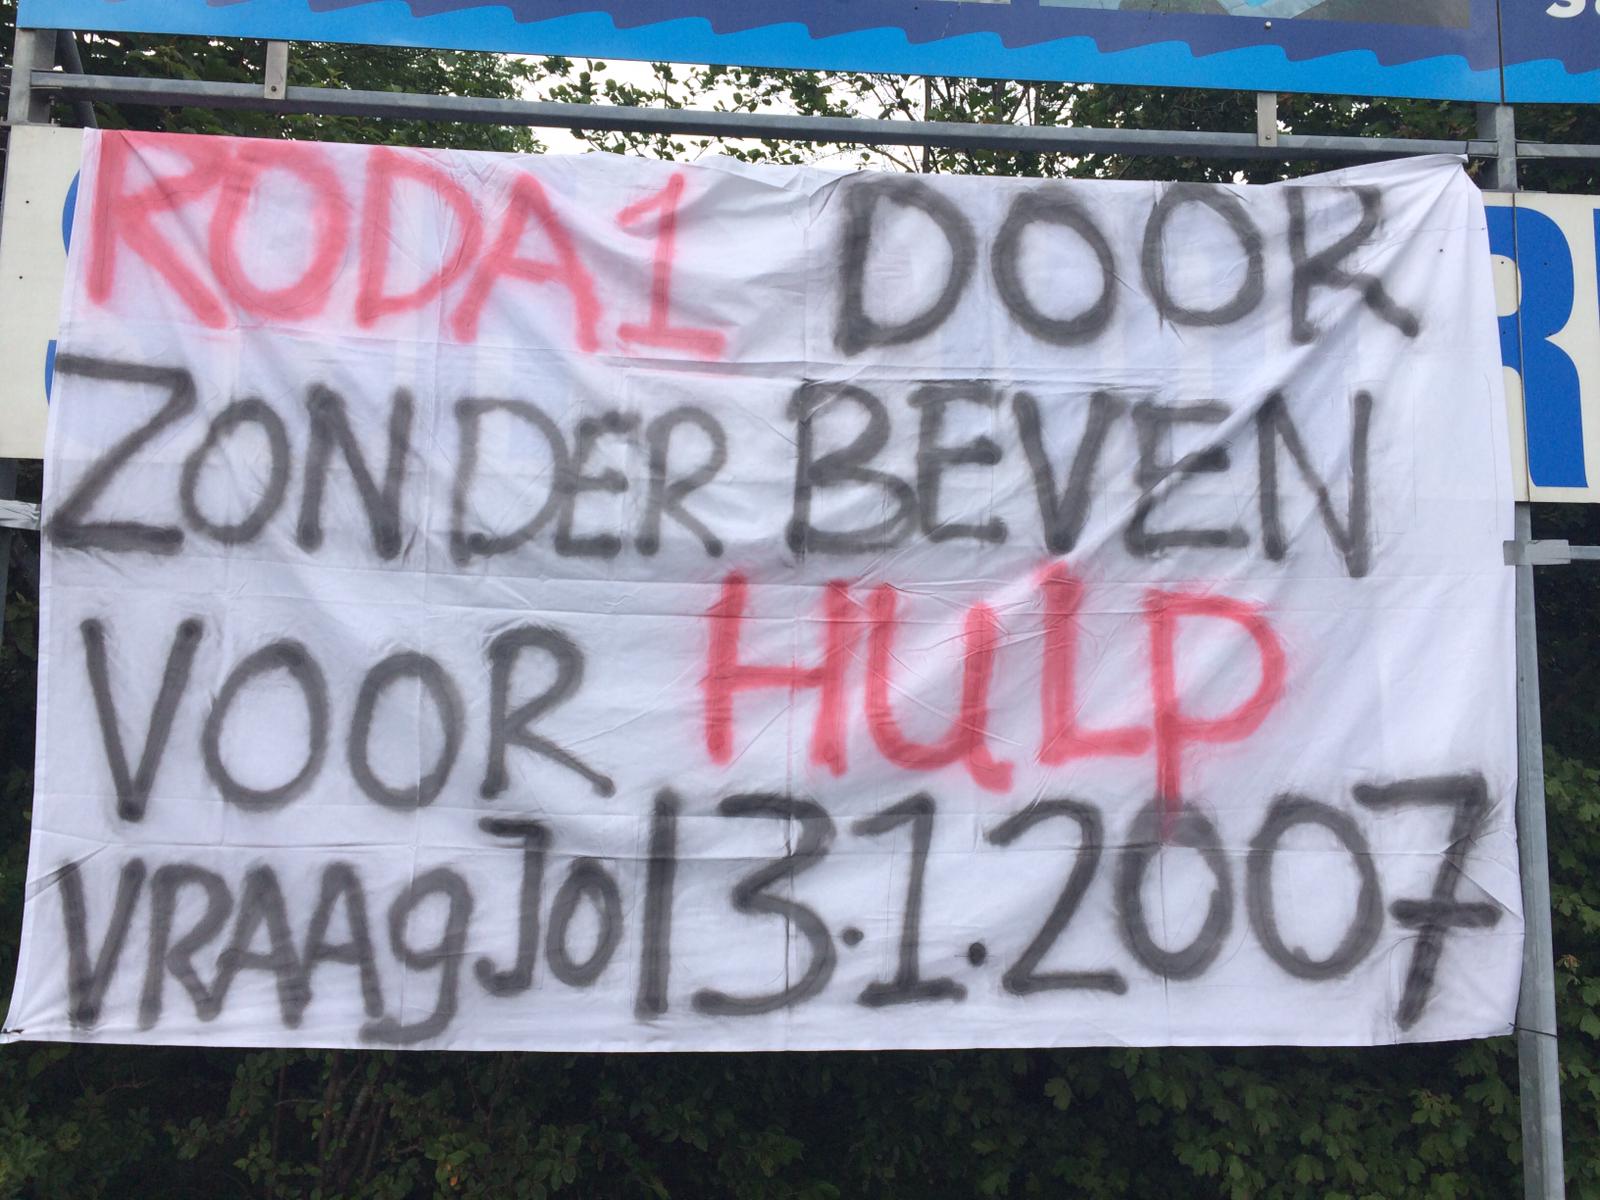 RODA1 DOOR
ZONDER BEVEN
VOOR HULP
VRAAg Jo 13.1.2007